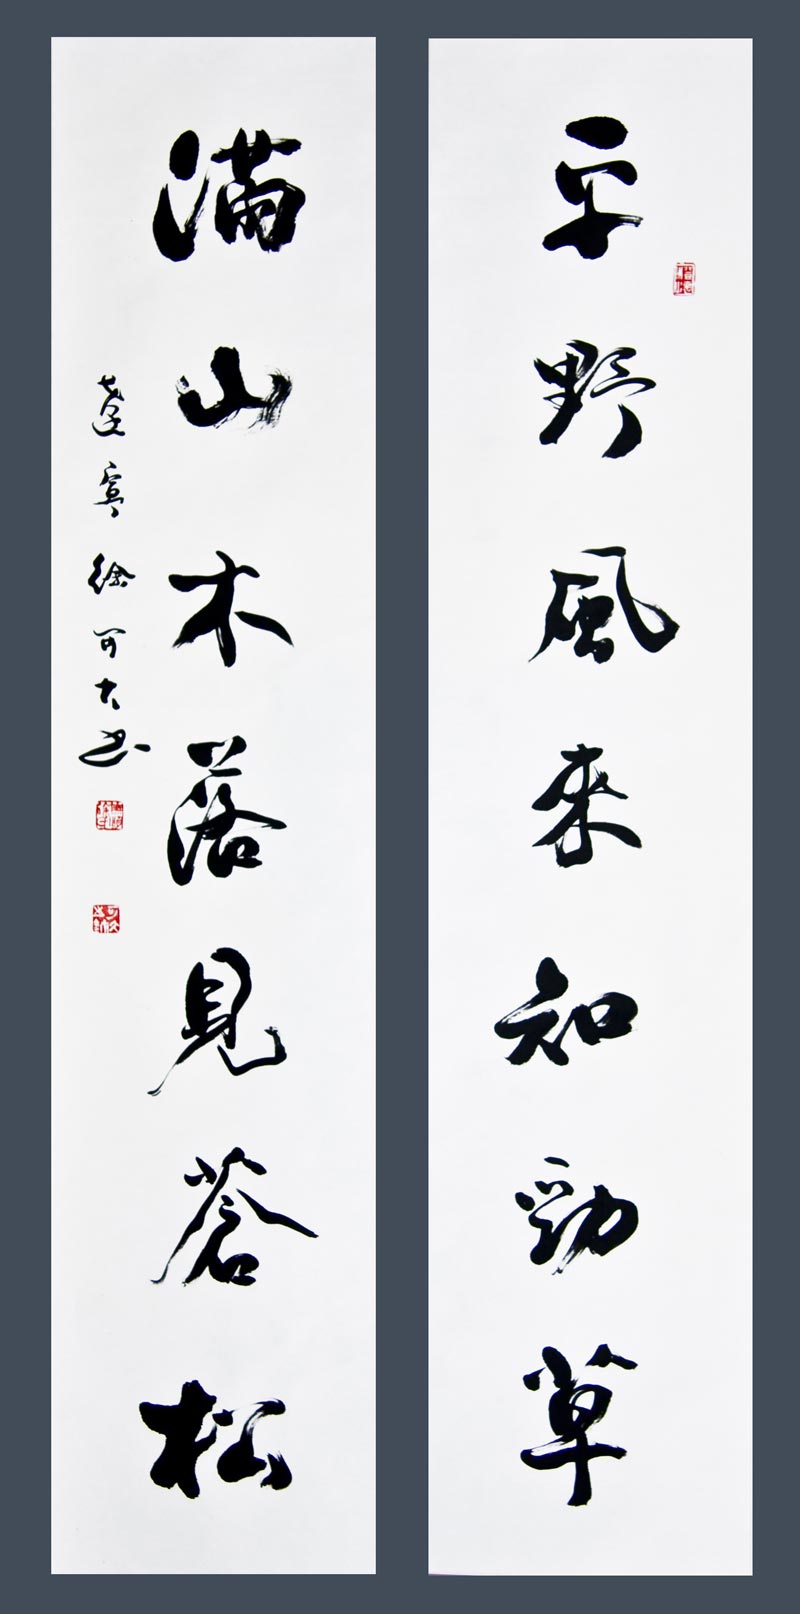 平野風来知勁草
滿山木落見蒼松
蓬寄徐可大书